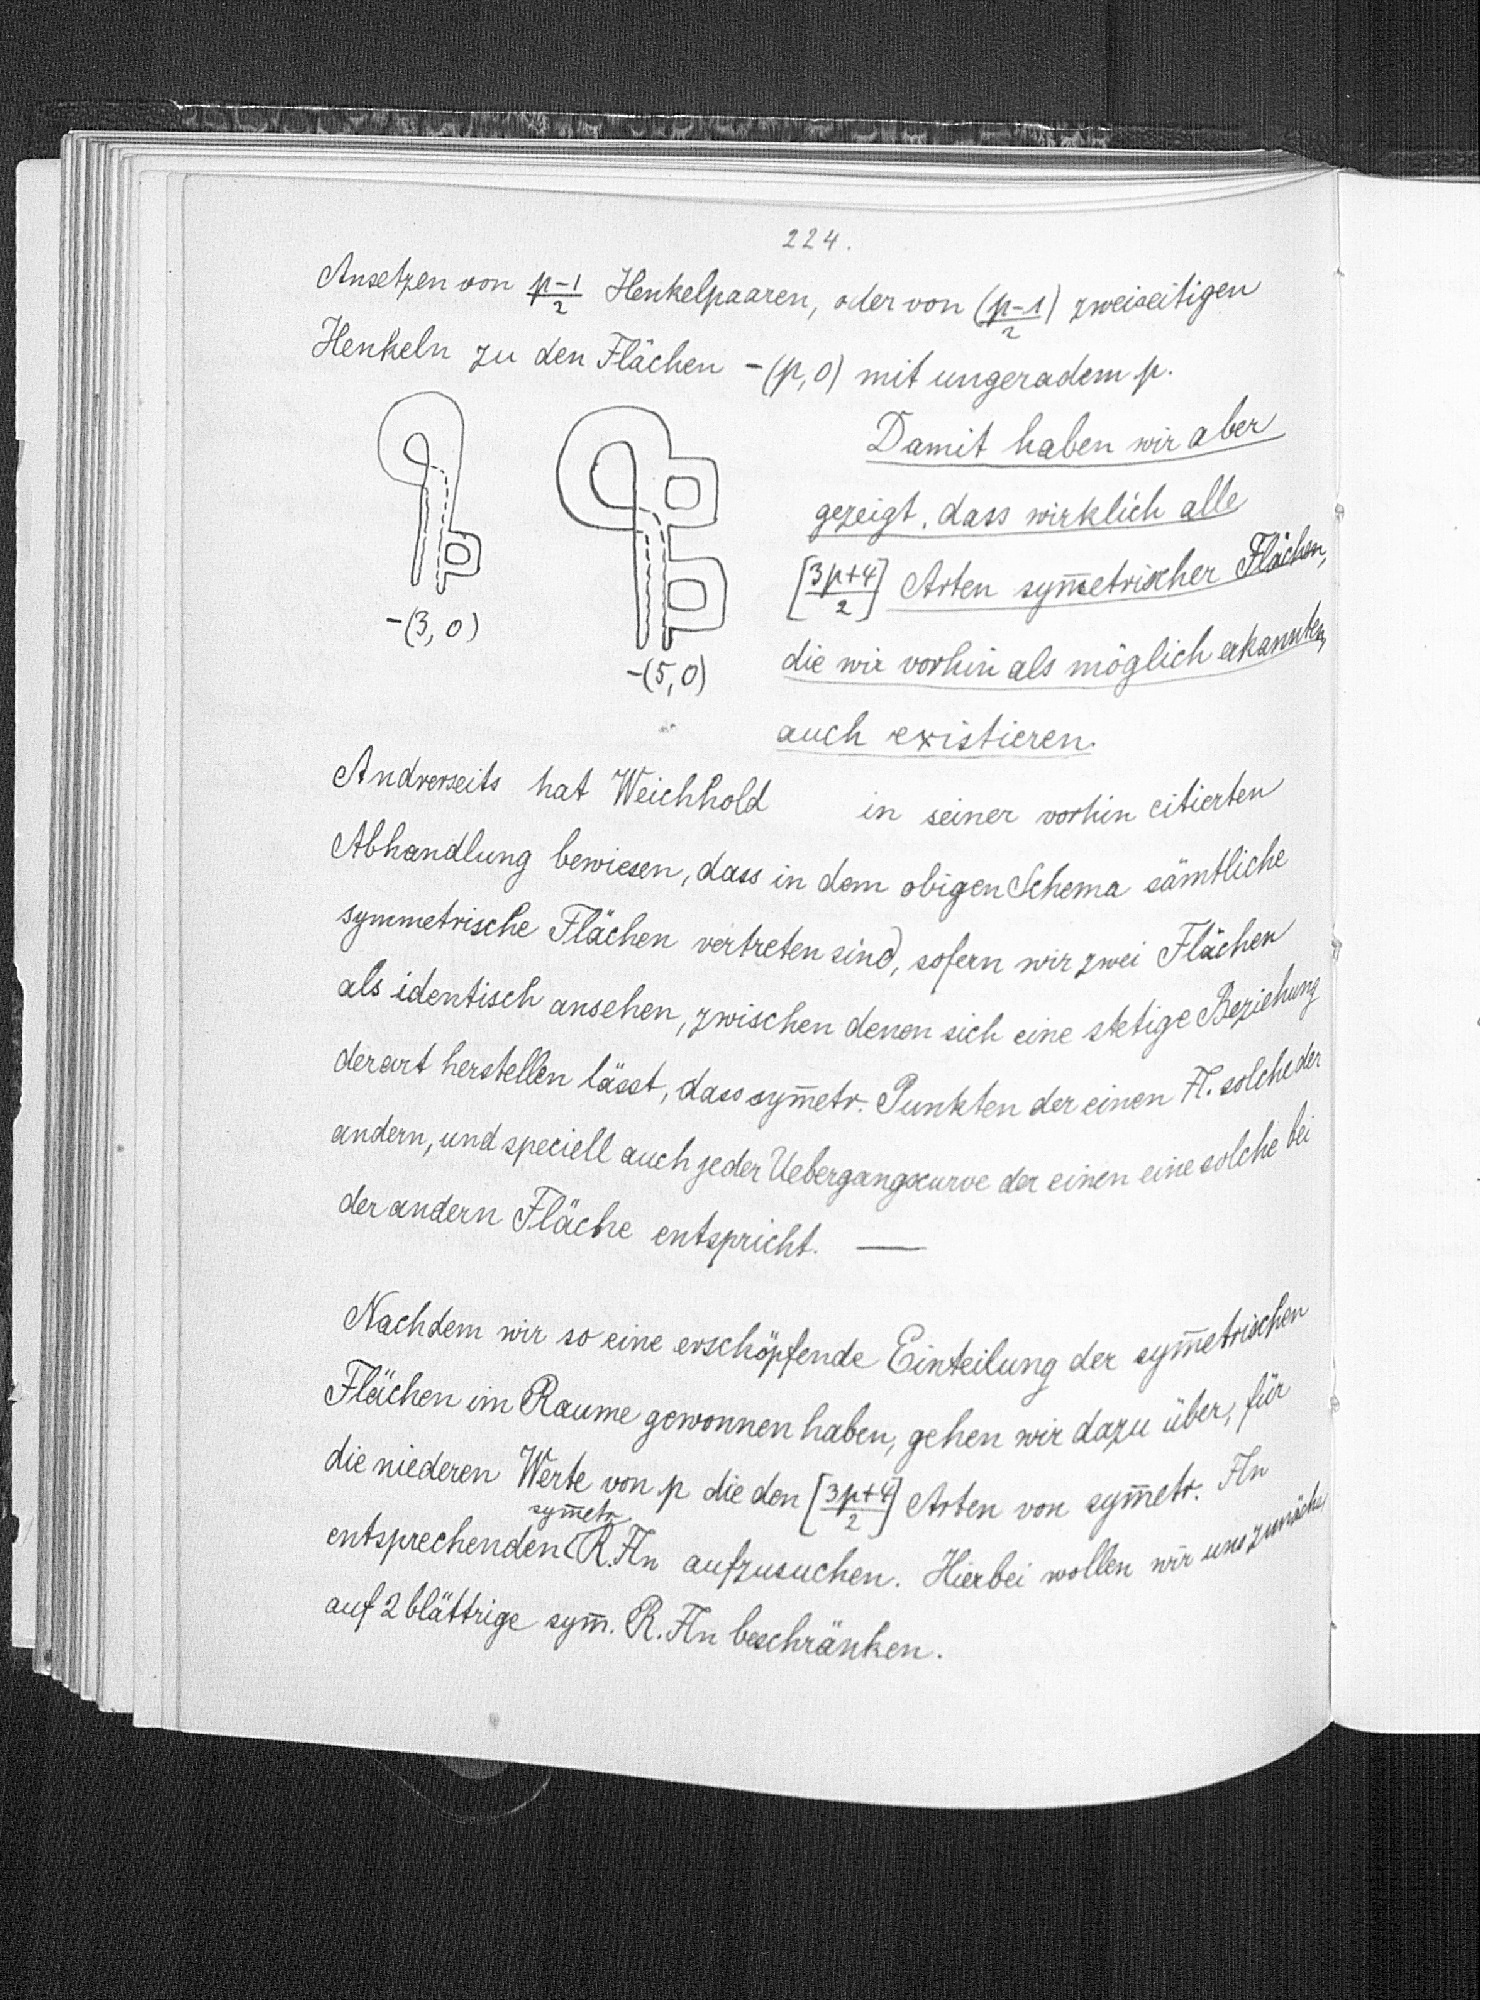 224.
Ansetzen von (p-1)/2 Henkelpaaren, oder von (p-1)/2 zweiseitigen
Henkeln zu den Flächen -(p,0) mit ungeradem p.
-(3,0)
-(5,0)
Damit haben wir aber
gezeigt, dass wirklich alle
[(3p+4)/2] Arten sym̅etrischer Flächen,
die wir vorhin als möglich erkannten,
auch existieren.
Andrerseits hat Weichhold in seiner vorhin citierten
Abhandlung bewiesen, dass in dem obigen Schema sämtliche
symmetrische Flächen vertreten sind, sofern wir zwei Flächen
als identisch ansehen, zwischen denen sich eine stetige Beziehung
derart herstellen lässt, dass sym̅etr. Punkten der einen Fl. solche der
andern, und speciell auch jeder Uebergangscurve der einen eine solche bei
der andern Fläche entspricht. —
Nachdem wir so eine erschöpfende Einteilung der sym̅etrischen
Flächen im Raume gewonnen haben, gehen wir dazu über, für
die niederen Werte von p die den [(3p+4)/2] Arten von sym̅etr. Fln
symetr.
entsprechenden R.Fln aufzusuchen. Hierbei wollen wir uns zunächst
auf 2 blättrige sym̅. R.Fln beschränken.